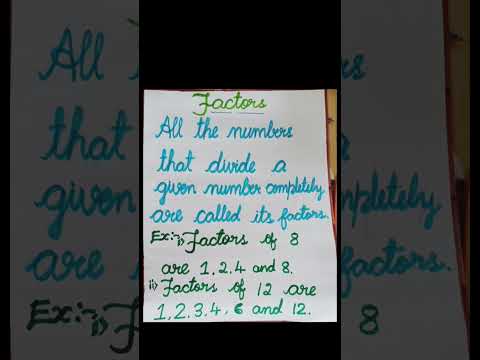 Factors
All the numbers
that divide a
given number completely
are called its factors.
Ex:- i) Factors of 8
are 1,2,4 and 8.
ii) Factors of 12 are
1,2,3,4,6 and 12.